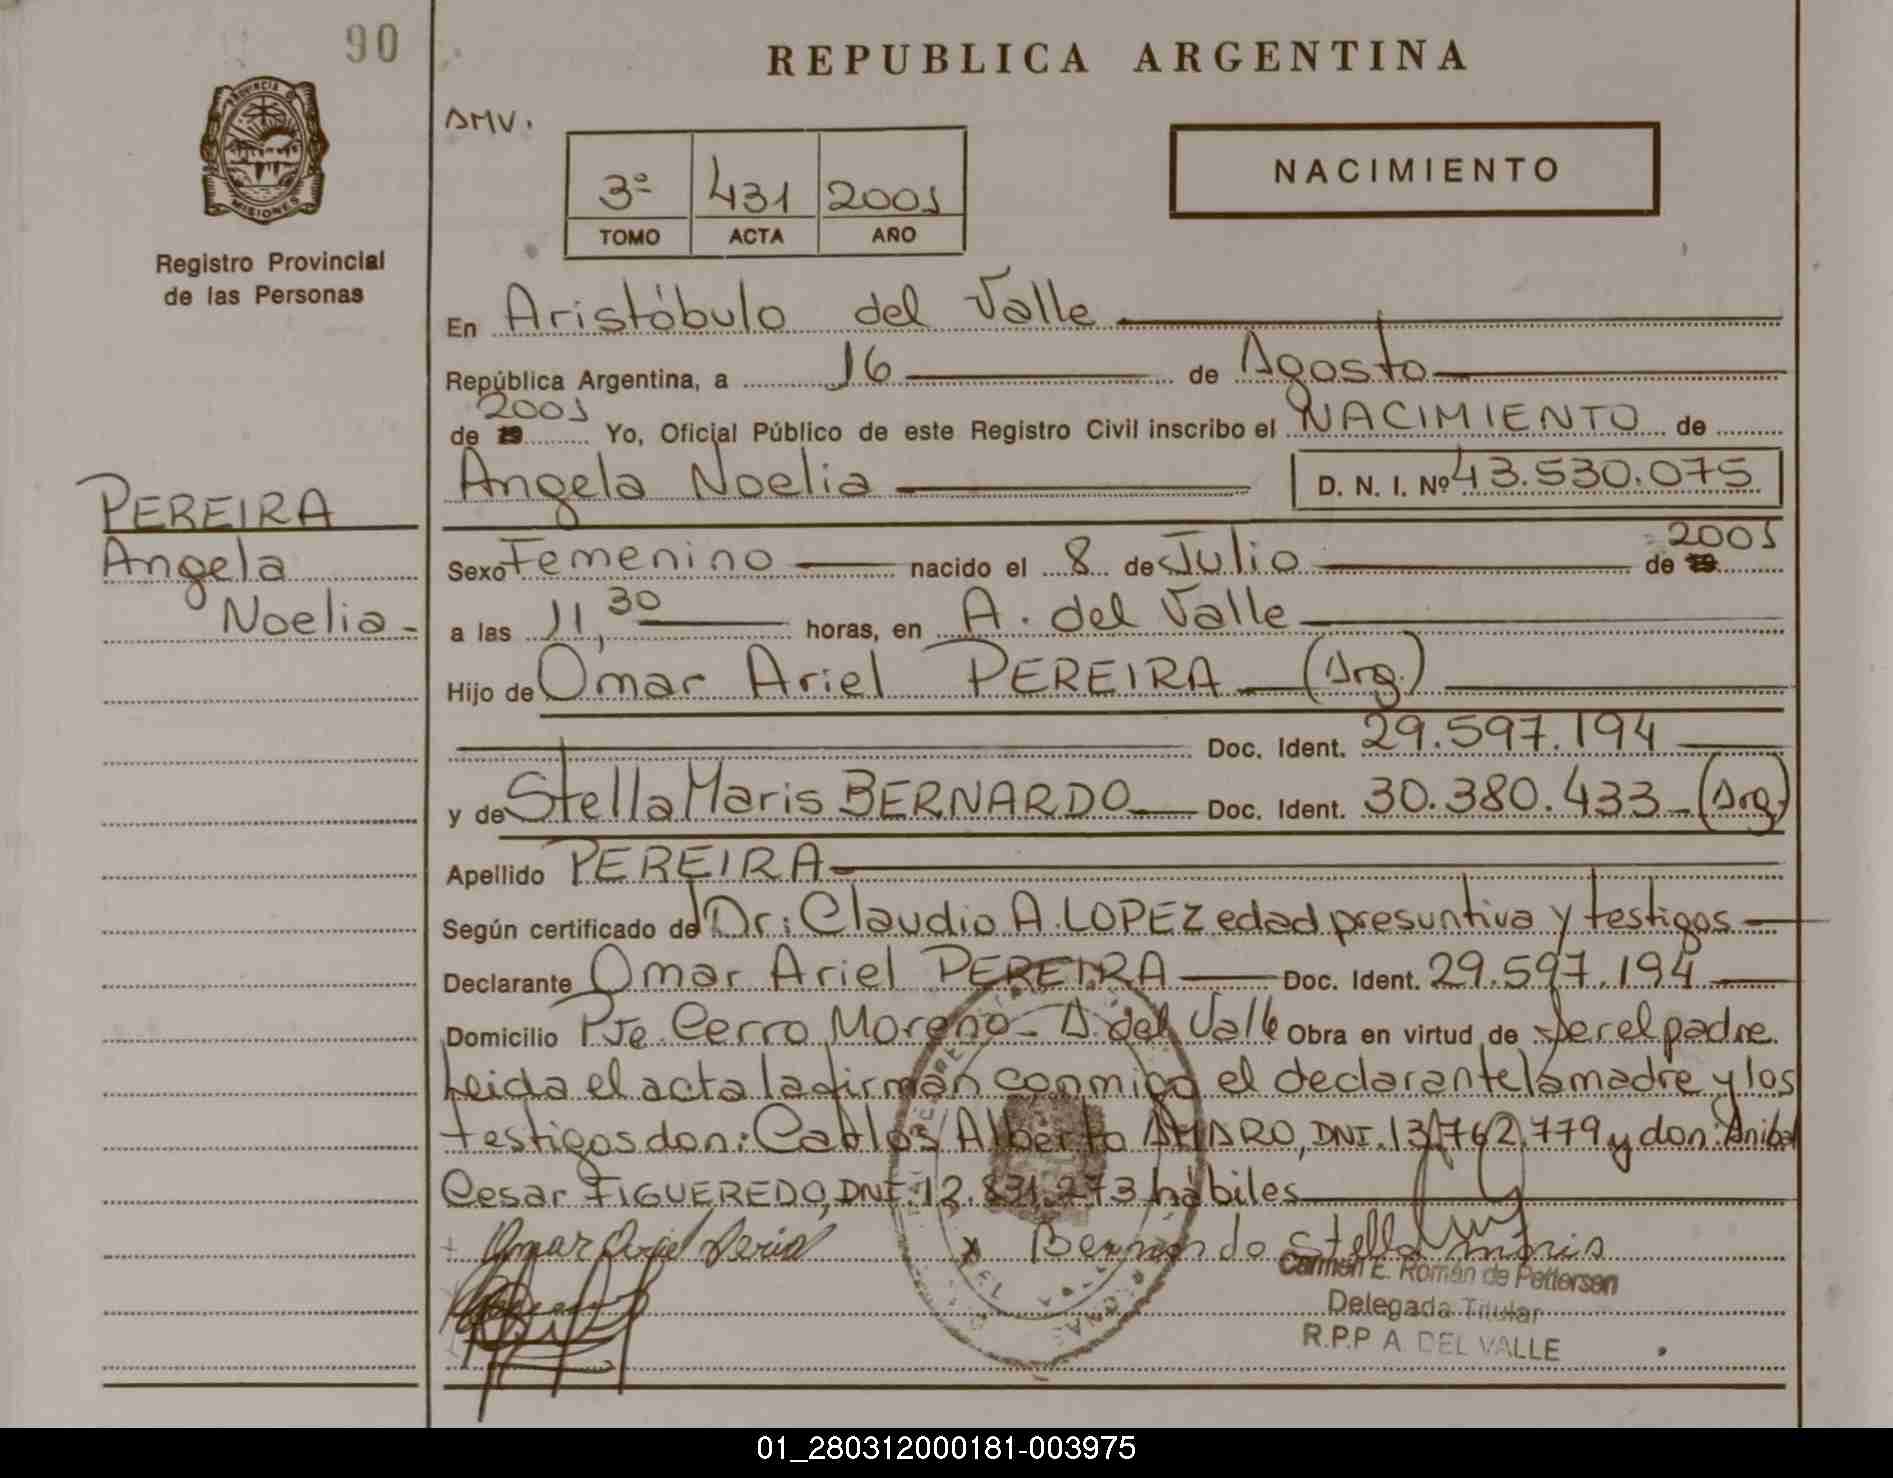 90
REPUBLICA ARGENTINA
PROVINCIA DE
MISIONES
Registro Provincial
de las Personas
AMV.
3º 431 2001
TOMO ACTA AÑO
NACIMIENTO
En Aristóbulo del Valle
República Argentina, a 16 de Agosto
de 19 2001 Yo, Oficial Público de este Registro Civil inscribo el NACIMIENTO de
Angela Noelia D. N. I. Nº 43.530.075
PEREIRA
Angela
Noelia-
Sexo Femenino nacido el 8 de Julio de 19 2001
a las 11,30 horas, en A. del Valle
Hijo de Omar Ariel PEREIRA (Arg.)
Doc. Ident. 29.597.194
y de Stella Maris BERNARDO Doc. Ident. 30.380.433 (Arg.)
Apellido PEREIRA
Según certificado de Dr: Claudio A. LOPEZ edad presuntiva y testigos
Declarante Omar Ariel PEREIRA Doc. Ident. 29.597.194
Domicilio Pje. Cerro Moreno - A. del Valle Obra en virtud de ser el padre.
Leida el acta la firman conmigo el declarante la madre y los
testigos don: Carlos Alberto AMARO, DNI. 13.762.779 y don: Anibal
Cesar FIGUEREDO, DNI: 12.831.273 hábiles
Omar Ariel Bernardo Stella maris
Carmen E. Román de Pettersen
Delegada Titular
R.P.P A. DEL VALLE
01_280312000181-003975